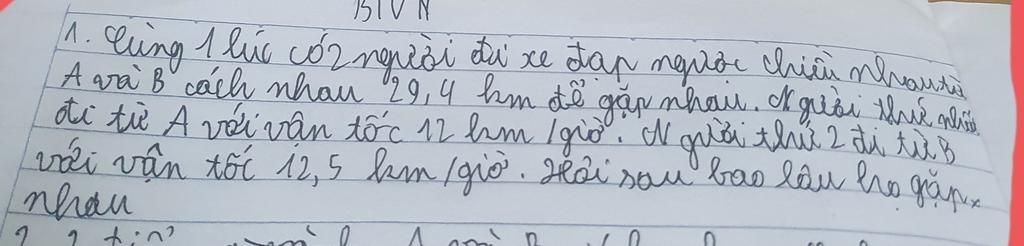 BTVN
1. Cùng 1 lúc có 2 người đi xe đạp ngược chiều nhau từ
A và B cách nhau 29,4 km để gặp nhau. Người thứ nhất
đi từ A với vận tốc 12 km/giờ. Người thứ 2 đi từ B
với vận tốc 12,5 km/giờ. Hỏi sau bao lâu họ gặp
nhau